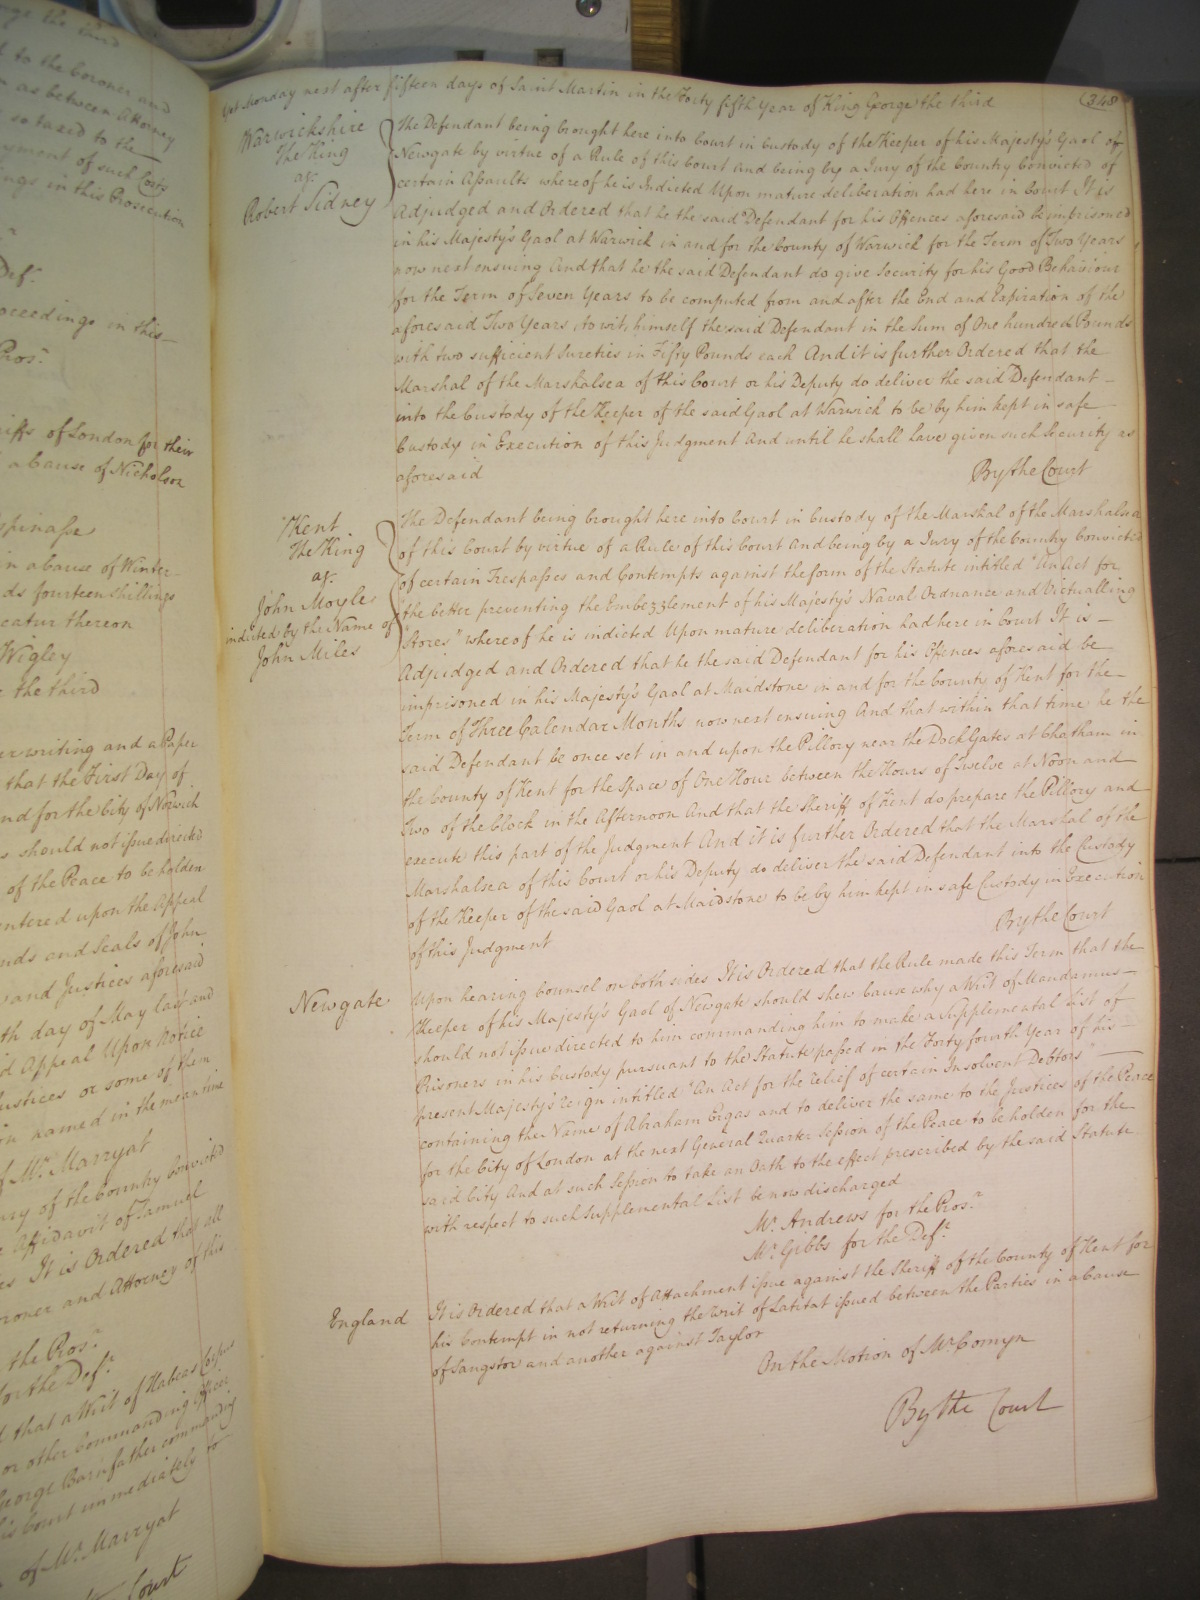 ge the third
d to the Coroner and
n as between Attorney
so taxed to the
yment of such Costs
ings in this Prosecution
Def.t
oceedings in this
Pros.r
riffs of London for their
a Cause of Nicholson
spinasse
in a Cause of Winter
ds fourteen shillings
catur thereon
Wigley
e the third
er writing and a Paper
that the First Day of
nd for the City of Norwich
s should not issue directed
of the Peace to be holden
entered upon the Appeal
nds and Seals of John
and Justices aforesaid
th day of May last and
d Appeal Upon Notice
Justices or some of them
in named in the mean time
of Mr. Marryat
ury of the Country convicted
e Affidavit of Samuel
es It is Ordered that all
roner and Attorney of this
the Pros.r
for the Def.t
d that a Writ of Habeas Corpus
or other Commanding Officer
George Barnfather commanding
his Court immediately to
of Mr. Marryat
Court
Yet Monday next after fifteen days of Saint Martin in the Forty fifth Year of King George the third
(348)
Warwickshire
The King
ag.t
Robert Sidney
The Defendant being brought here into Court in Custody of the Keeper of his Majesty's Gaol of
Newgate by virtue of a Rule of this Court And being by a Jury of the Country Convicted of
certain Assaults whereof he is Indicted Upon mature deliberation had here in Court It is
Adjudged and Ordered that he the said Defendant for his Offences aforesaid be imprisoned
in his Majesty's Gaol at Warwick in and for the County of Warwick for the Term of Two Years
now next ensuing And that he the said Defendant do give Security for his Good Behaviour
for the Term of Seven Years to be computed from and after the End and Expiration of the
aforesaid Two Years, to wit, himself the said Defendant in the Sum of One hundred Pounds
with two sufficient Sureties in Fifty Pounds each And it is further Ordered that the
Marshal of the Marshalsea of this Court or his Deputy do deliver the said Defendant
into the Custody of the Keeper of the said Gaol at Warwick to be by him kept in safe
Custody in Execution of this Judgment And until he shall have given such Security as
aforesaid
By the Court
Kent
The King
ag.t
John Moyle
indicted by the Name of
John Miles
The Defendant being brought here into Court in Custody of the Marshal of the Marshalsea
of this Court by virtue of a Rule of this Court And being by a Jury of the Country Convicted
of certain Trespasses and Contempts against the form of the Statute intitled "An Act for
"the better preventing the Embezzlement of his Majesty's Naval Ordnance and Victualling
"Stores" whereof he is indicted Upon mature deliberation had here in Court It is
Adjudged and Ordered that he the said Defendant for his Offences aforesaid be
imprisoned in his Majesty's Gaol at Maidstone in and for the County of Kent for the
Term of Three Calendar Months now next ensuing And that within that time he the
said Defendant be once set in and upon the Pillory near the Dock Gates at Chatham in
the County of Kent for the Space of One Hour between the Hours of Twelve at Noon and
Two of the Clock in the Afternoon And that the Sheriff of Kent do prepare the Pillory and
execute this part of the Judgment And it is further Ordered that the Marshal of the
Marshalsea of this Court or his Deputy do deliver the said Defendant into the Custody
of the Keeper of the said Gaol at Maidstone to be by him kept in safe Custody in Execution
of this Judgment
By the Court
Newgate
Upon hearing Counsel on both sides It is Ordered that the Rule made this Term that the
Keeper of his Majesty's Gaol of Newgate should shew Cause why a Writ of Mandamus
should not issue directed to him commanding him to make a Supplemental List of
Prisoners in his Custody pursuant to the Statute passed in the Forty fourth Year of his
present Majesty's reign intitled "An Act for the relief of certain Insolvent Debtors"
containing the Name of Abraham Ergas and to deliver the same to the Justices of the Peace
for the City of London at the next General Quarter Session of the Peace to be holden for the
said City And at such Session to take an Oath to the effect prescribed by the said Statute
with respect to such Supplemental List be now discharged
Mr. Andrews for the Pros.r
Mr. Gibbs for the Def.t
England
It is Ordered that a Writ of Attachment issue against the Sheriff of the County of Kent for
his Contempt in not returning the Writ of Latitat issued between the Parties in a Cause
of Sangstor and another against Taylor
On the Motion of Mr. Comyn
By the Court